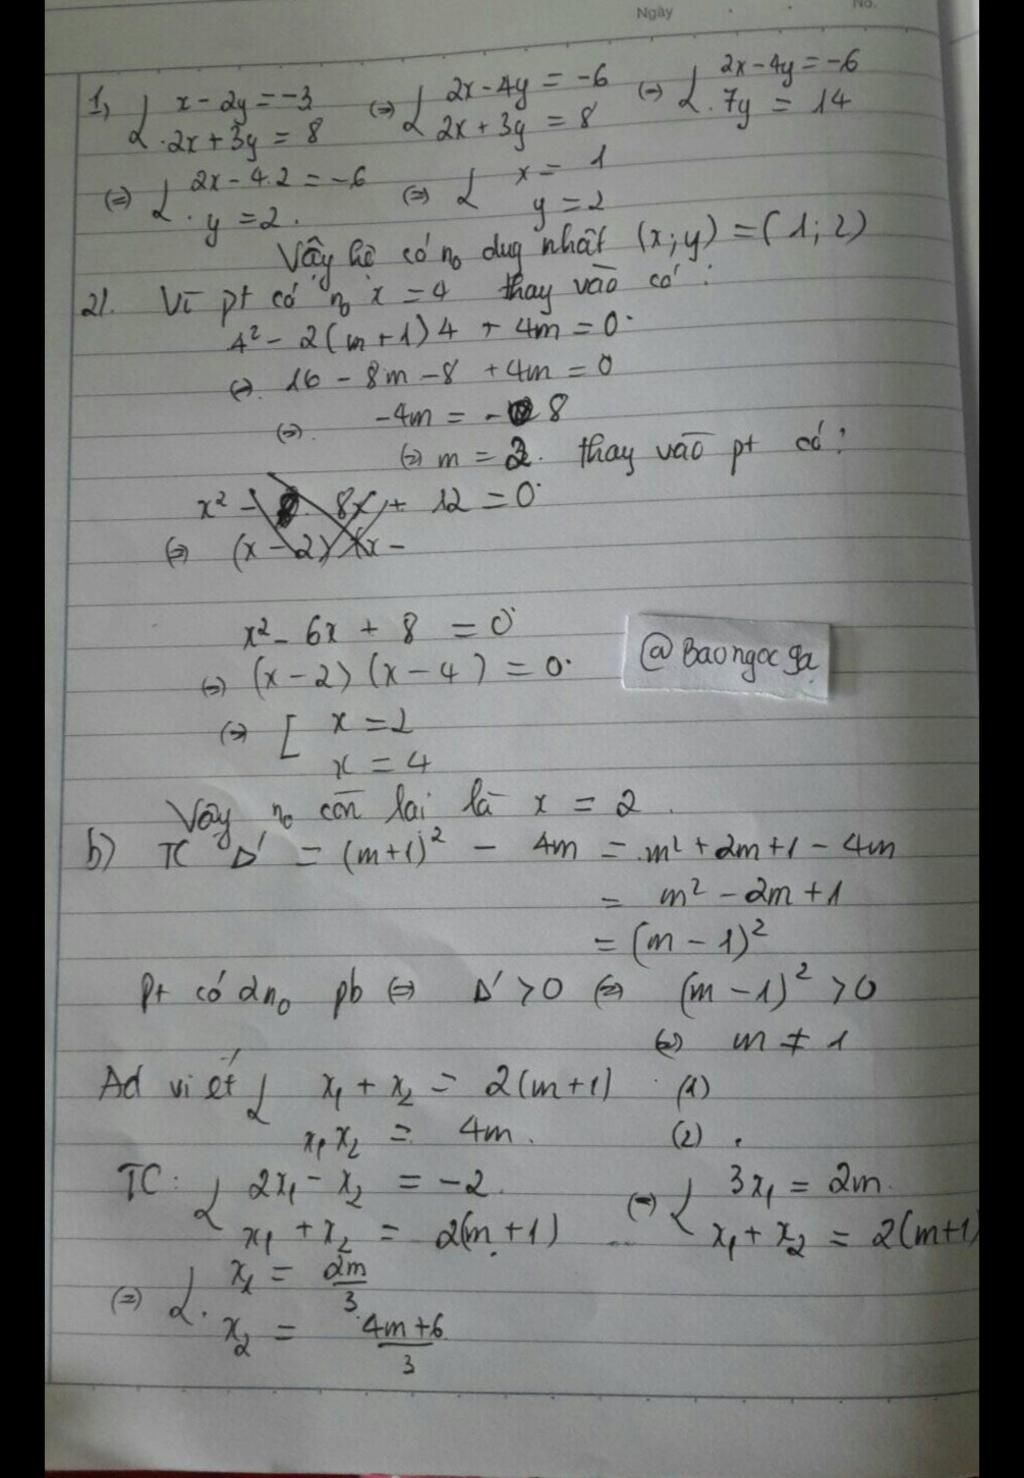 Ngày No.
1, { x - 2y = -3 (=) { 2x - 4y = -6 (=) { 2x - 4y = -6
2x + 3y = 8 2x + 3y = 8 7y = 14
(=) { 2x - 4.2 = -6 (=) { x = 1
y = 2. y = 2
Vậy hệ có no duy nhất (x;y) = (1;2)
2). Vì pt có no x = 4 thay vào có :
4² - 2(m+1)4 + 4m = 0.
(=) 16 - 8m - 8 + 4m = 0
(=). -4m = -8
(=) m = 2. thay vào pt có :
x² - 8x + 12 = 0.
(=) (x - 2) (x -
x² - 6x + 8 = 0
(=) (x - 2) (x - 4) = 0.
(=) [ x = 2
x = 4
@Baongoc ga
Vậy no còn lại là x = 2.
b) TC Δ' = (m+1)² - 4m = m² + 2m + 1 - 4m
= m² - 2m + 1
= (m - 1)²
Pt có 2no pb (=) Δ' > 0 (=) (m - 1)² > 0
(=) m ≠ 1
Ad vi ét { x₁ + x₂ = 2(m+1) (1)
x₁x₂ = 4m. (2).
TC: { 2x₁ - x₂ = -2. (=) { 3x₁ = 2m.
x₁ + x₂ = 2(m+1) x₁ + x₂ = 2(m+1)
(=) { x₁ = 2m/3
x₂ = 4m+6/3